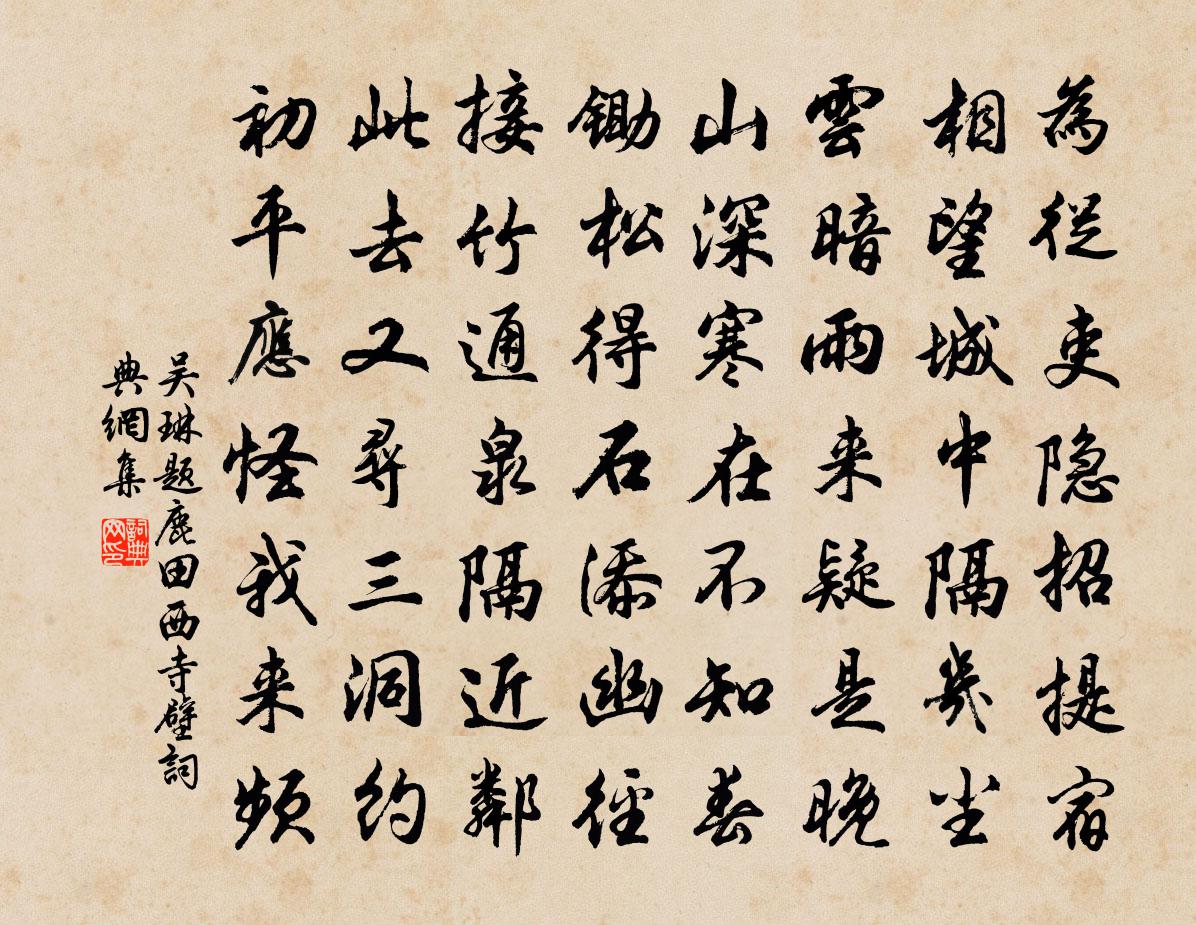 為從吏隐招提宿
相望城中隔幾尘
雲暗雨来疑是晚
山深寒在不知春
鋤松得石添幽徑
接竹通泉隔近鄰
此去又尋三洞約
初平應怪我来頻
吴琳題鹿田西寺壁詞
典網集
詞典
网印